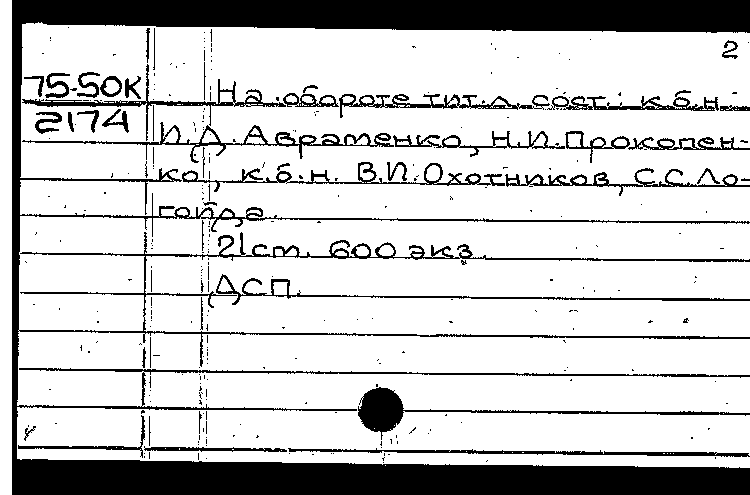 2
75-50К
2174
На обороте тит.л. сост.: к.б.н.
И.Д. Авраменко, Н.И. Прокопен-
ко, к.б.н. В.И. Охотников, С.С. Ло-
гойда.
21 cm. 600 экз.
ДСП.